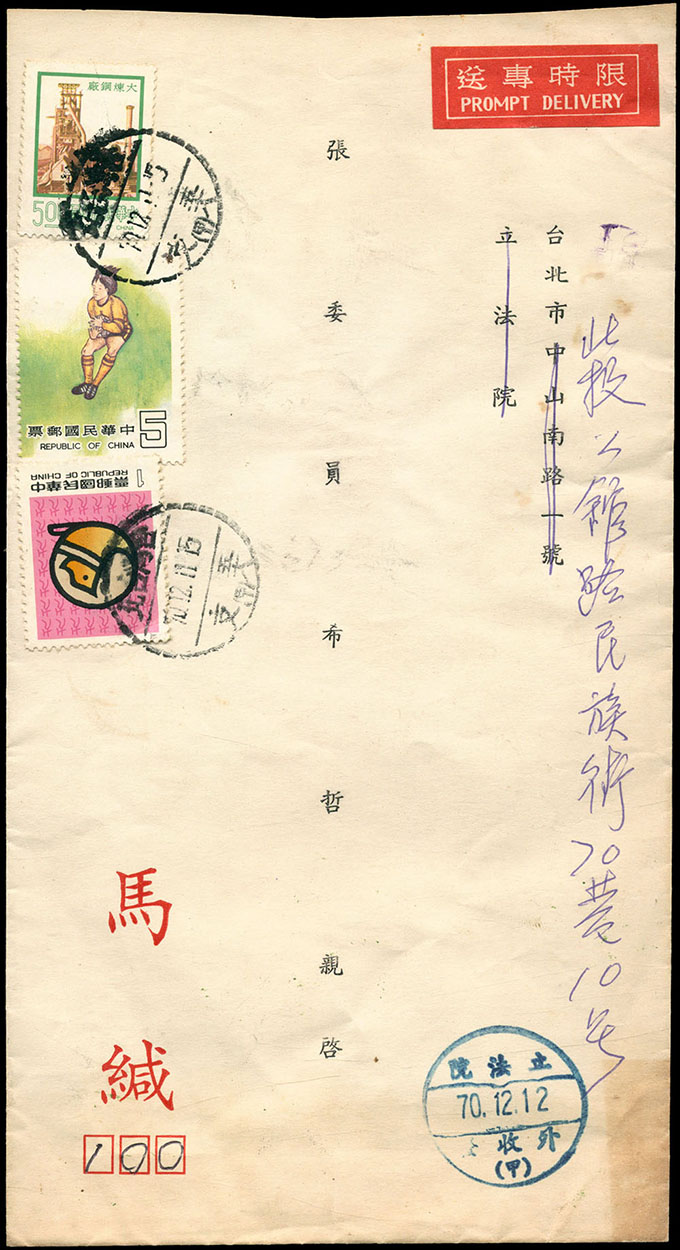 限時專送
PROMPT DELIVERY
北投公館路民族街70巷10号
台北市中山南路一號
立法院
張委員希哲親啓
馬緘
100
大煉鋼廠
500
CHINA
5
中華民國郵票
REPUBLIC OF CHINA
中華民國郵票
REPUBLIC OF CHINA
1
70.12.11.15
(甲)
70.12.11.15
(甲)
立法院
70.12.12
外收
(甲)